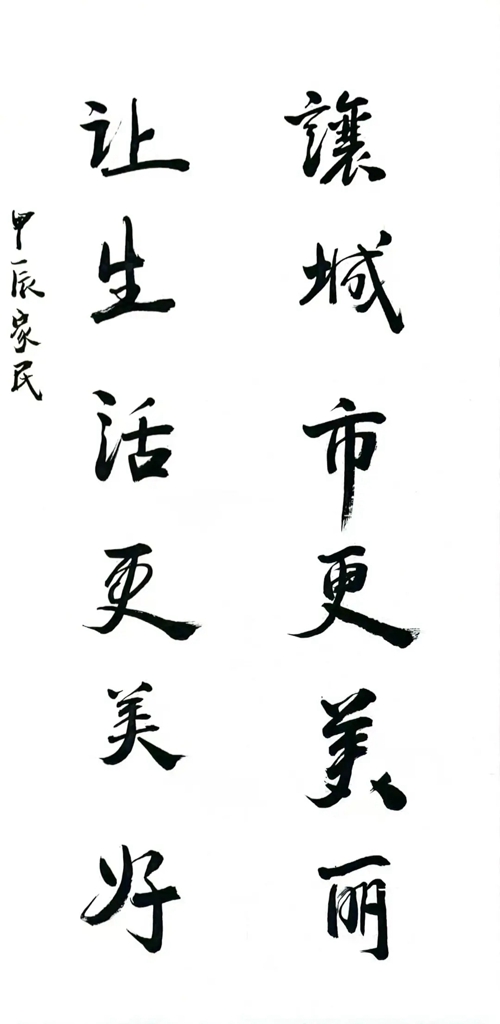 讓城市更美丽
让生活更美好
甲辰家民